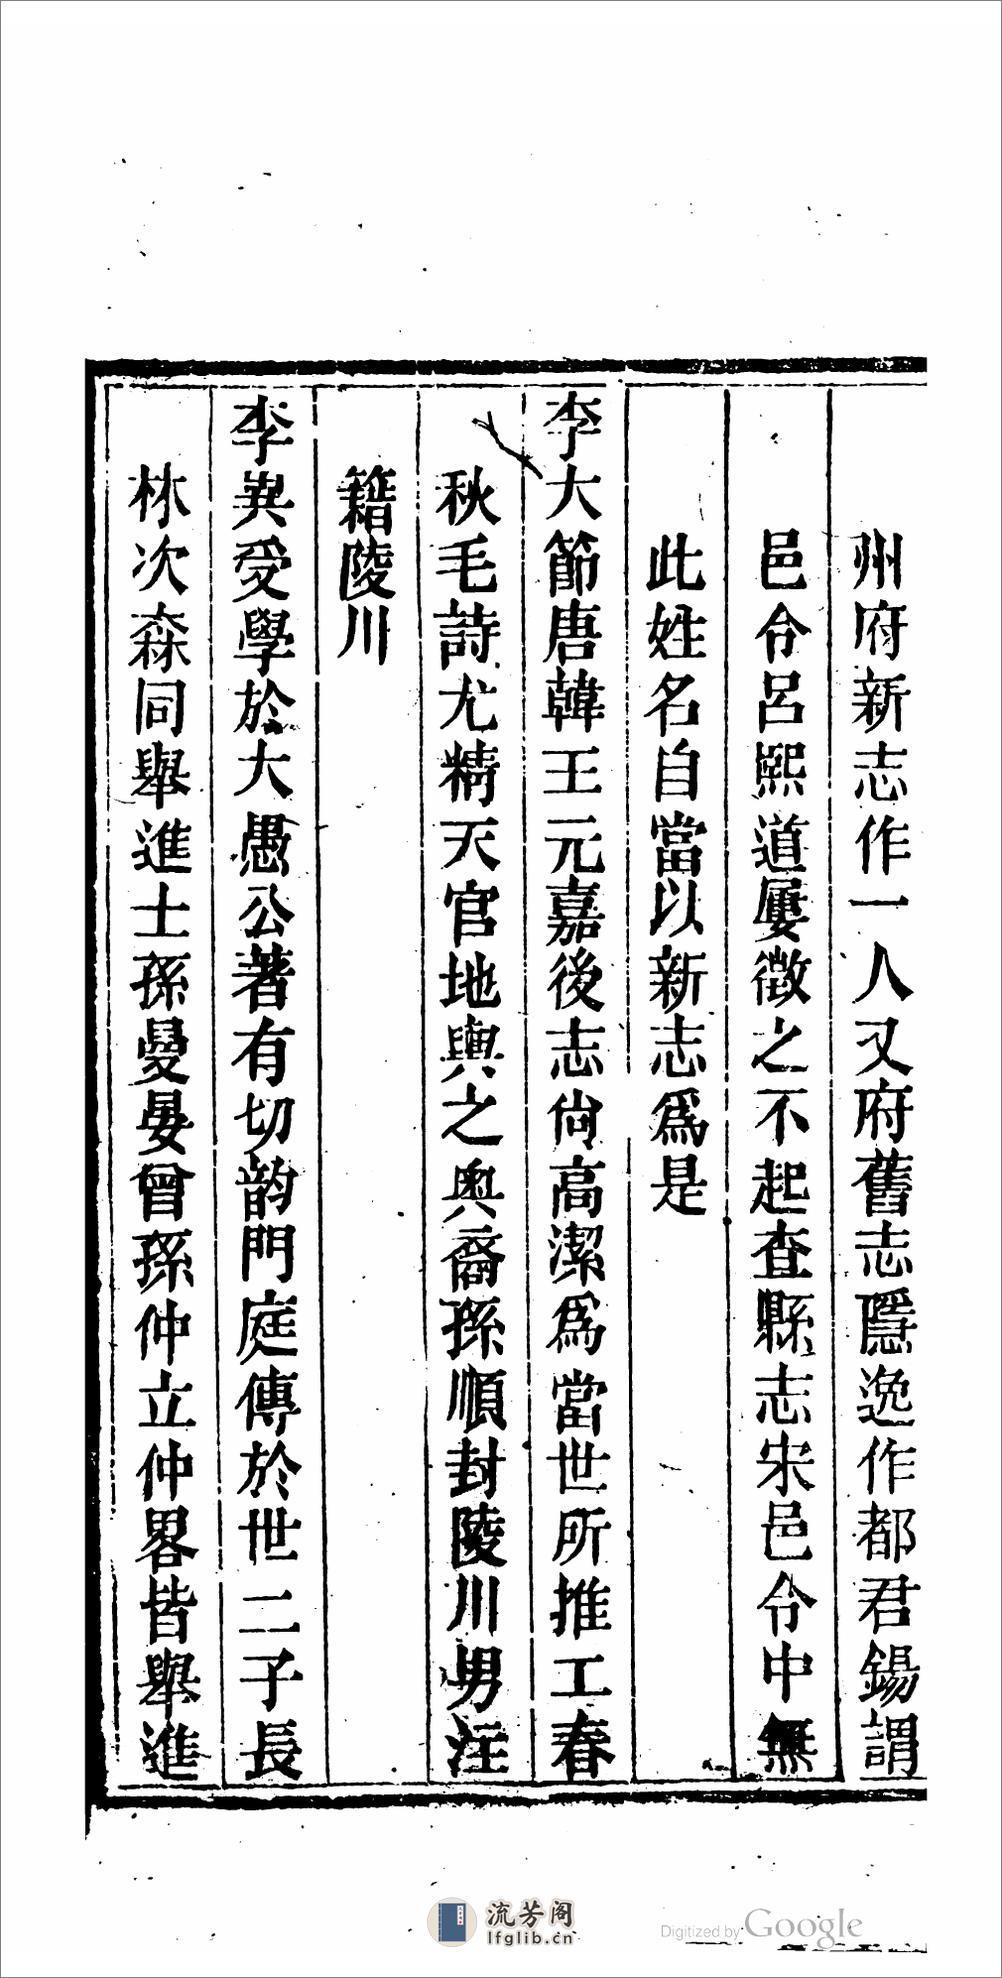 州府新志作一人又府舊志隱逸作都君錫謂
邑令呂熙道屢徵之不起查縣志宋邑令中無
此姓名自當以新志爲是
李大節唐韓王元嘉後志尙高潔爲當世所推工春
秋毛詩尤精天官地輿之奧裔孫順封陵川男注
籍陵川
李異受學於大愚公著有切韵門庭傳於世二子長
林次森同舉進士孫曼晏曾孫仲立仲畧皆舉進
流芳阁
lfglib.cn
Digitized by Google